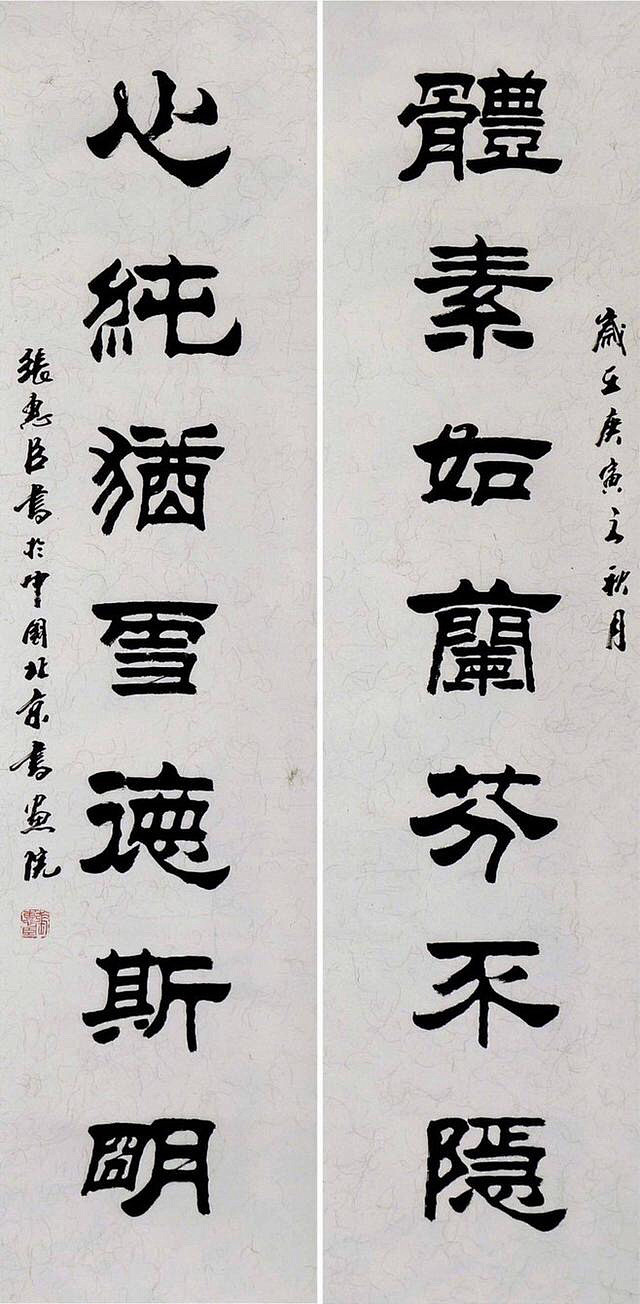 體素如蘭芬不隱
歲在庚寅之秋月
心純猶雪德斯明
張惠臣書於中國北京書畫院